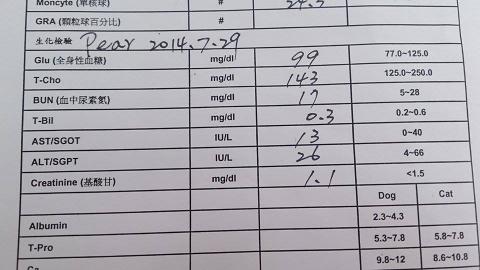 Moncyte (單核球) # 24.5
GRA (顆粒球百分比) #
生化檢驗 Pear 2014.7.29
Glu (全身性血糖) mg/dl 99 77.0~125.0
T-Cho mg/dl 143 125.0~250.0
BUN (血中尿素氮) mg/dl 17 5~28
T-Bil mg/dl 0.3 0.2~0.6
AST/SGOT IU/L 13 0~40
ALT/SGPT IU/L 26 4~66
Creatinine (基酸甘) mg/dl 1.1 <1.5
Dog Cat
Albumin 2.3~4.3
T-Pro 5.3~7.8 5.8~7.8
Ca 9.8~12 8.6~10.8